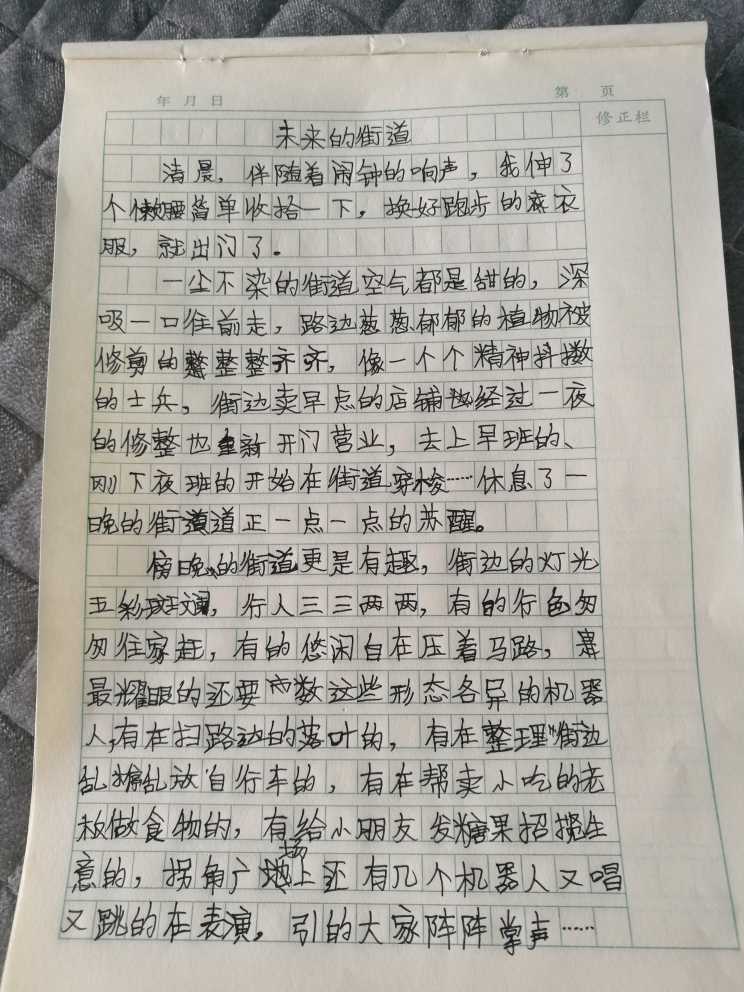 年 月 日 第 页
修正栏
未来的街道
清晨，伴随着闹钟的响声，我伸了
个懒腰简单收拾一下，换好跑步的衣
服，就出门了。
一尘不染的街道空气都是甜的，深
吸一口往前走，路边葱葱郁郁的植物被
修剪的整整齐齐，像一个个精神抖擞
的士兵，街边卖早点的店铺也经过一夜
的修整也重新开门营业，去上早班的、
刚下夜班的开始在街道穿梭……休息了一
晚的街道正一点一点的苏醒。
傍晚的街道更是有趣，街边的灯光
五彩斑斓，行人三三两两，有的行色匆
匆往家赶，有的悠闲自在压着马路，
最耀眼的还要数这些形态各异的机器
人，有在扫路边的落叶的，有在整理街边
乱停乱放自行车的，有在帮卖小吃的老
板做食物的，有给小朋友发糖果招揽生
意的，拐角广场上还有几个机器人又唱
又跳的在表演，引的大家阵阵掌声……